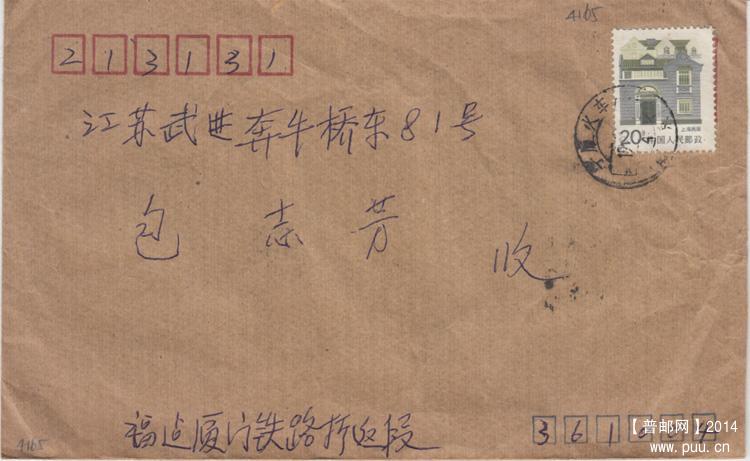 4165
213131
江苏武进奔牛桥东81号
上海民居
20分
中国人民邮政
包志芳 收
福建厦门铁路折返段
361004
4165
【普邮网】2014
www.puu.cn